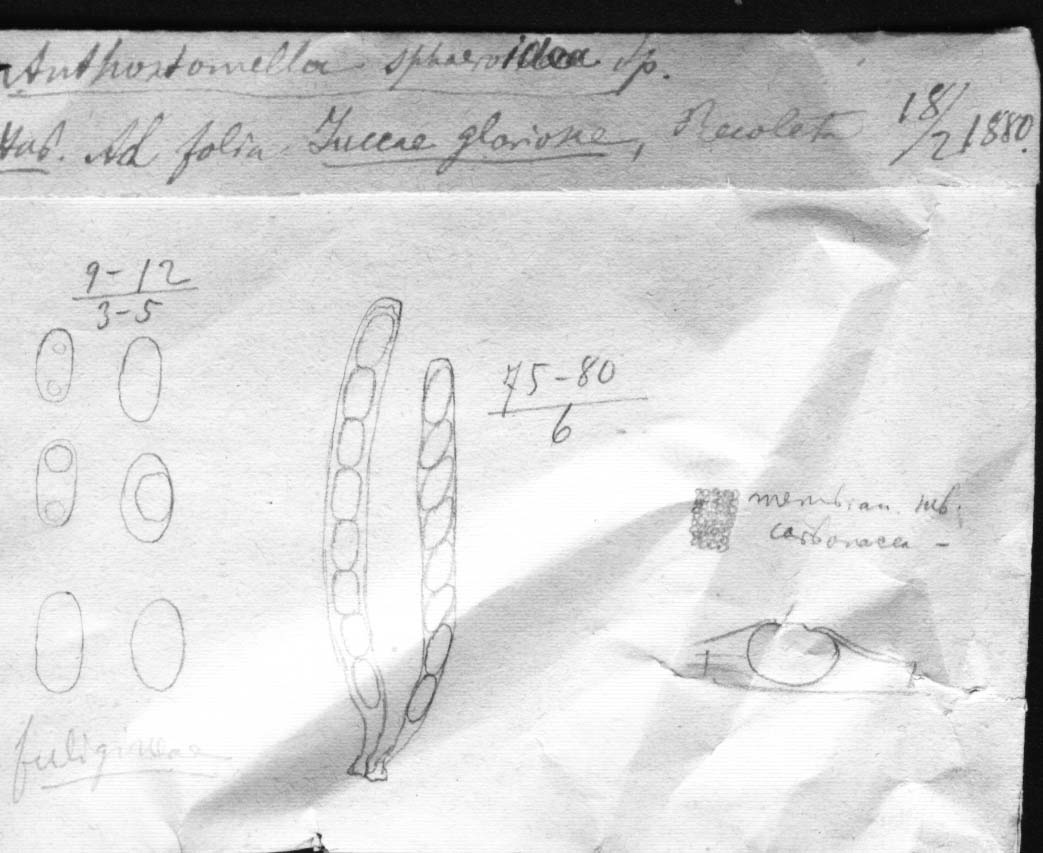 Anthostomella sphaeroidea Sp.
Hab. Ad folia Yuccae gloriosae, Recoleta 18/2 1880.
9-12
3-5
75-80
6
membran. sub.
carbonacea -
fuligineae